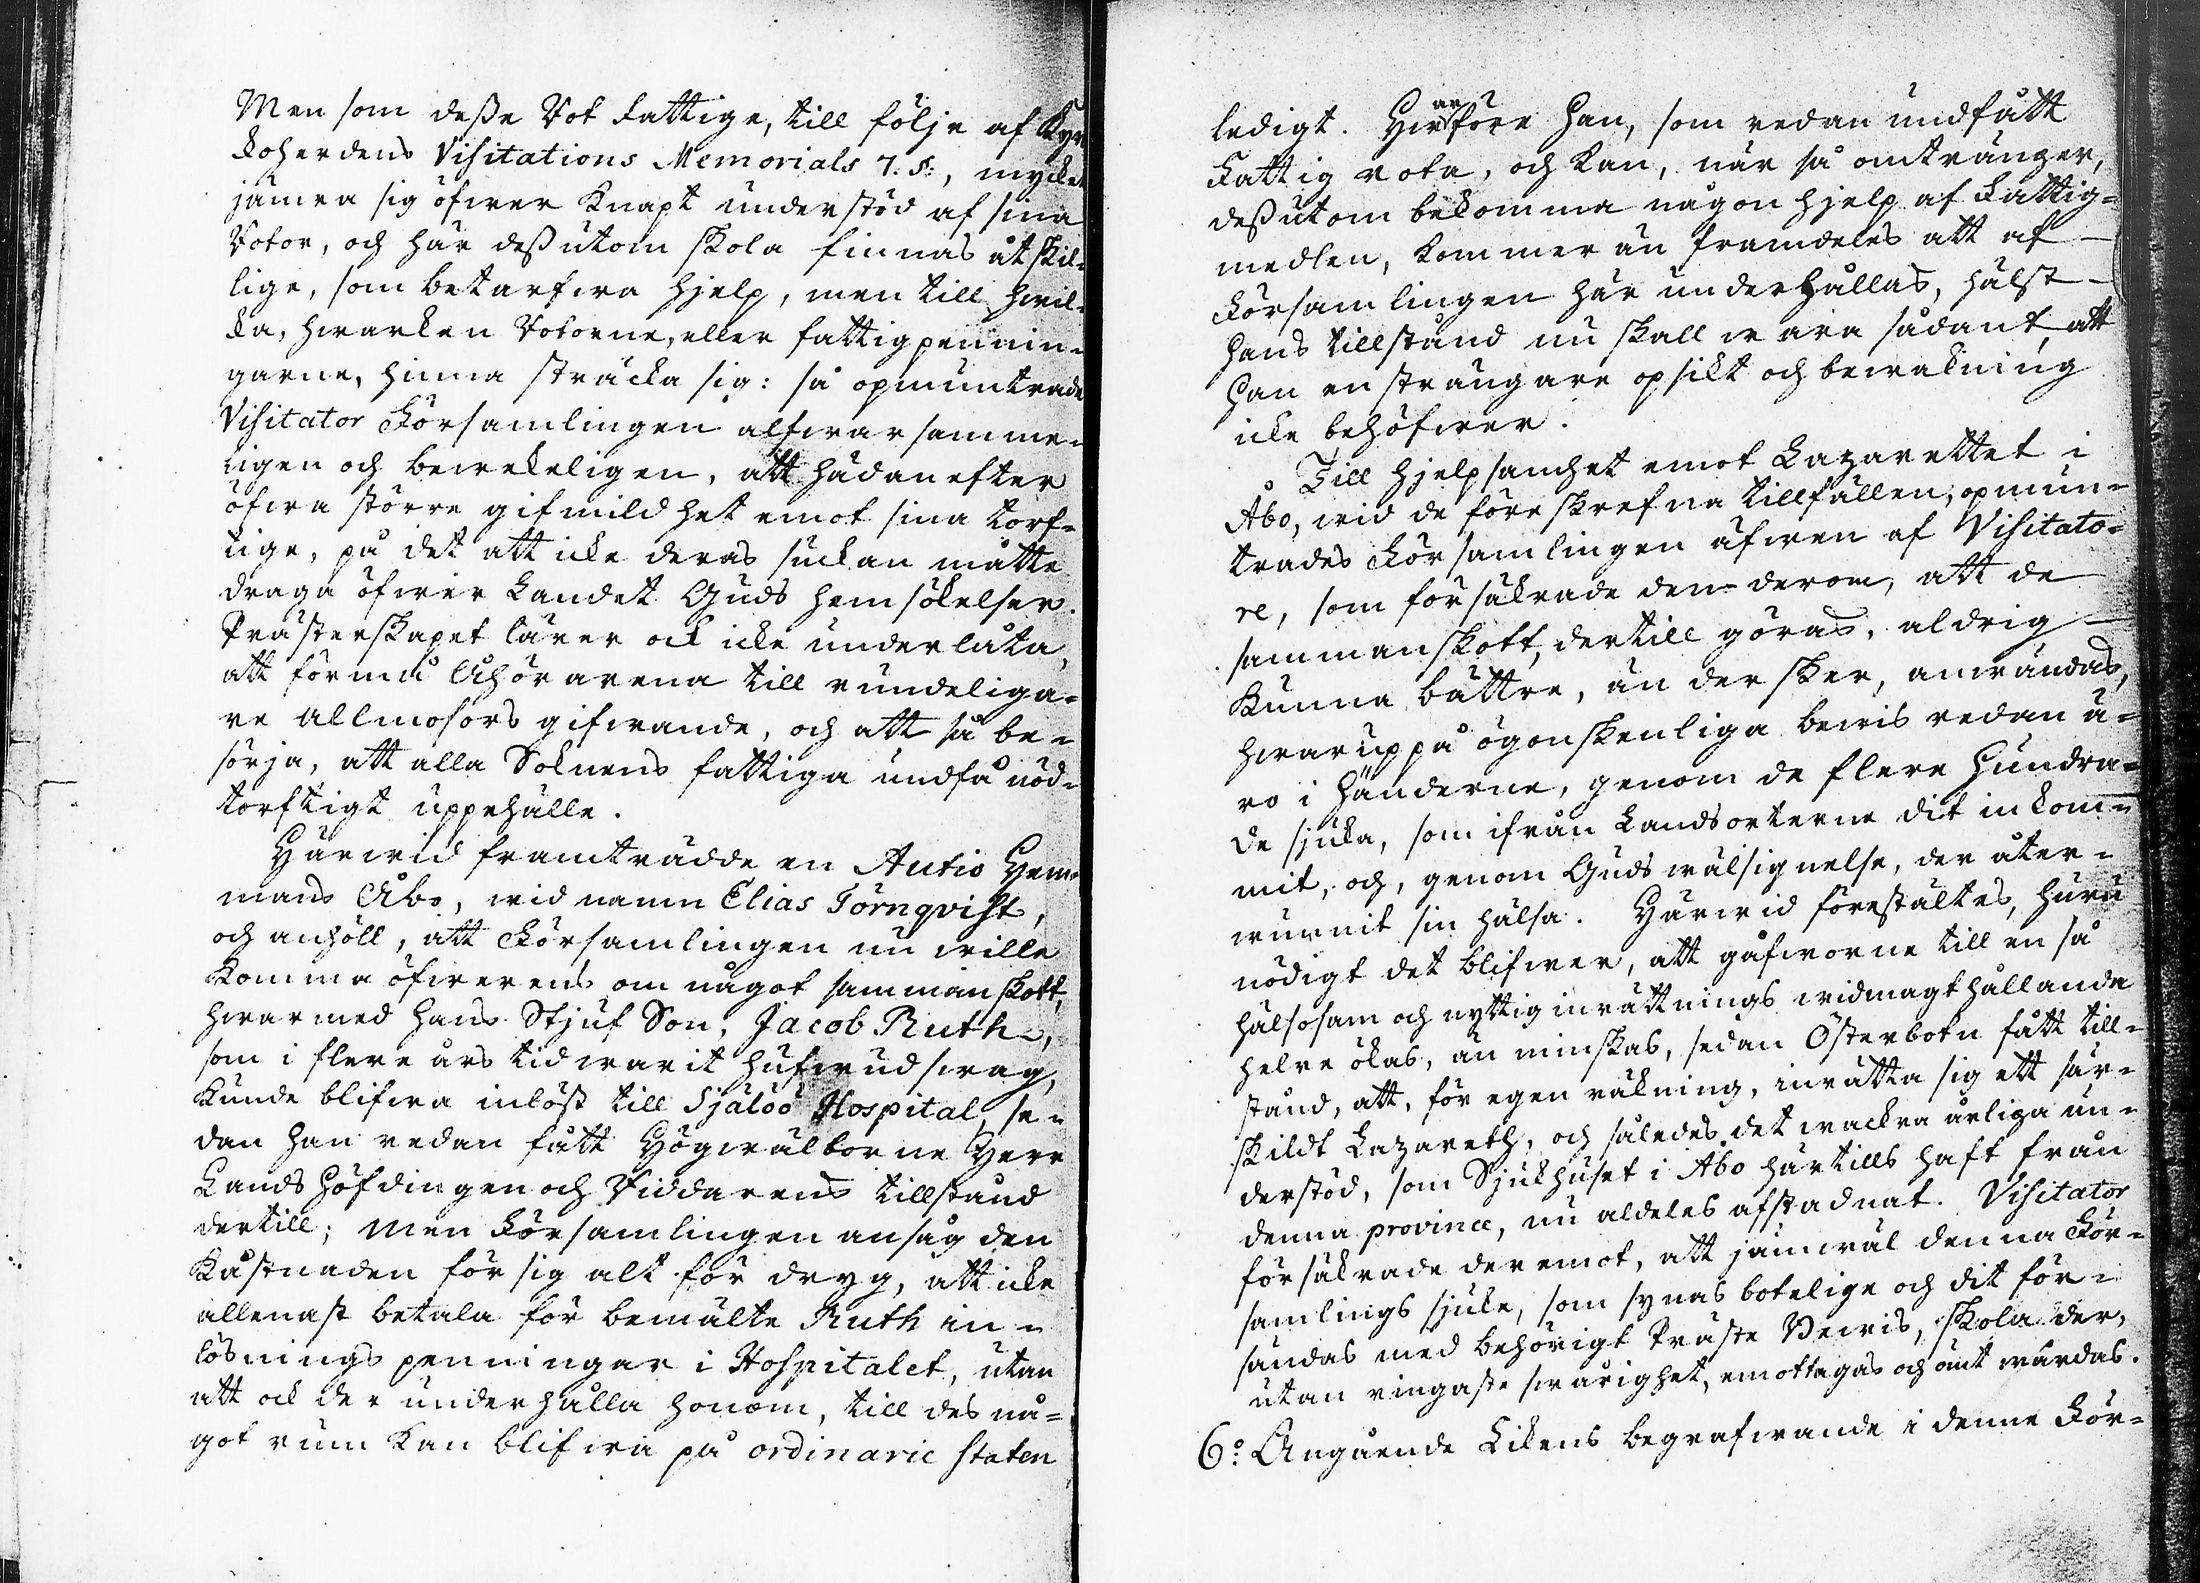 Men som deße Rot Fattige, till följe af Kyr
koherdens Visitations Memorials 7. §:, mycket
jämra sig öfwer Knapt understöd af sina
Rotor, och här deßutom skola finnas åtskil-
lige, som betarfwa hjelp, men till hwil-
ka, hwarken Rotorne, eller fattigpennin-
garne, hinna sträcka sig: så opmuntrade
Visitator Församlingen alfwarsamme-
ligen och bewekeligen, att hädanefter
öfwa större gifmildhet emot sina torf-
tige, på det att icke deras suckan måtte
draga öfwer Landet Guds hemsökelser.
Prästerskapet lärer ock icke underlåta,
att förmå Åhörarena till rundeliga-
re Allmosors gifwande, och att så be-
sörja, att alla Soknens fattiga undfå nöd-
torftigt uppehälle.
Härwid framträdde en Autio Hem-
mans Åbo, wid namn Elias Törnqvist,
och anhöll, att Församlingen nu wille
Komma öfwerens om något sammanskott,
hwarmed hans Stjuf Son, Jacob Ruth,
som i flere års tid warit hufwudswag,
Kunde blifwa inlöst till Själöö Hospital, se-
dan han redan fått Högwälborne Herr
Landshöfdingen och Riddarens tillstånd
dertill; men Församlingen ansåg den
Kåstnaden för sig alt för dryg, att icke
allenast betala för bemälte Ruth in-
lösnings penningar i Hospitalet, utan
att ock der underhålla honom, till des nå-
got rum Kan blifwa på ordinarie staten
ledigt. Härföre han, som redan undfått
Fattig rota, och Kan, när så omtränger,
deßutom bekomma någon hjelp af Fattig-
medlen, Kommer än framdeles att af
Församlingen här underhållas, hälst
hans tillstånd nu skall wara sådant, att
han en strängare opsikt och bewakning
icke behöfwer.
Till hjelpsamhet emot Lazarettet i
Åbo, wid de föreskrefna tillfällen, opmun-
trades Församlingen äfwen af Visitato-
re, som försäkrade den derom, att de
sammanskott, dertill göras, aldrig
Kunna bättre, än der sker, anwändas,
hwaruppå ögonskenliga bewis redan ä-
ro i händerne, genom de flere hundra-
de sjuka, som ifrån Landsorterne dit inkom-
mit, och, genom Guds wälsignelse, der åter-
wunnit sin hälsa. Härwid förestältes, huru
nödigt det blifwer, att gåfworne till en så
hälsosam och nyttig inrättnings widmagthållande
helre ökas, än minskas, sedan Österbotn fått till-
stånd, att, för egen räkning, inrätta sig ett sär-
skildt Lazareth, och således det wackra årliga un-
derstöd, som Sjukhuset i Åbo härtills haft från
denna province, nu aldeles afstadnat. Visitator
försäkrade deremot, att jämwäl denna För-
samlings sjuke, som synas botelige och dit för-
sändas med behörigt Präste Bewis, skola der,
utan ringaste swårighet, emottagas och ömt wårdas.
6:o Angående Likens begrafwande i denne För-